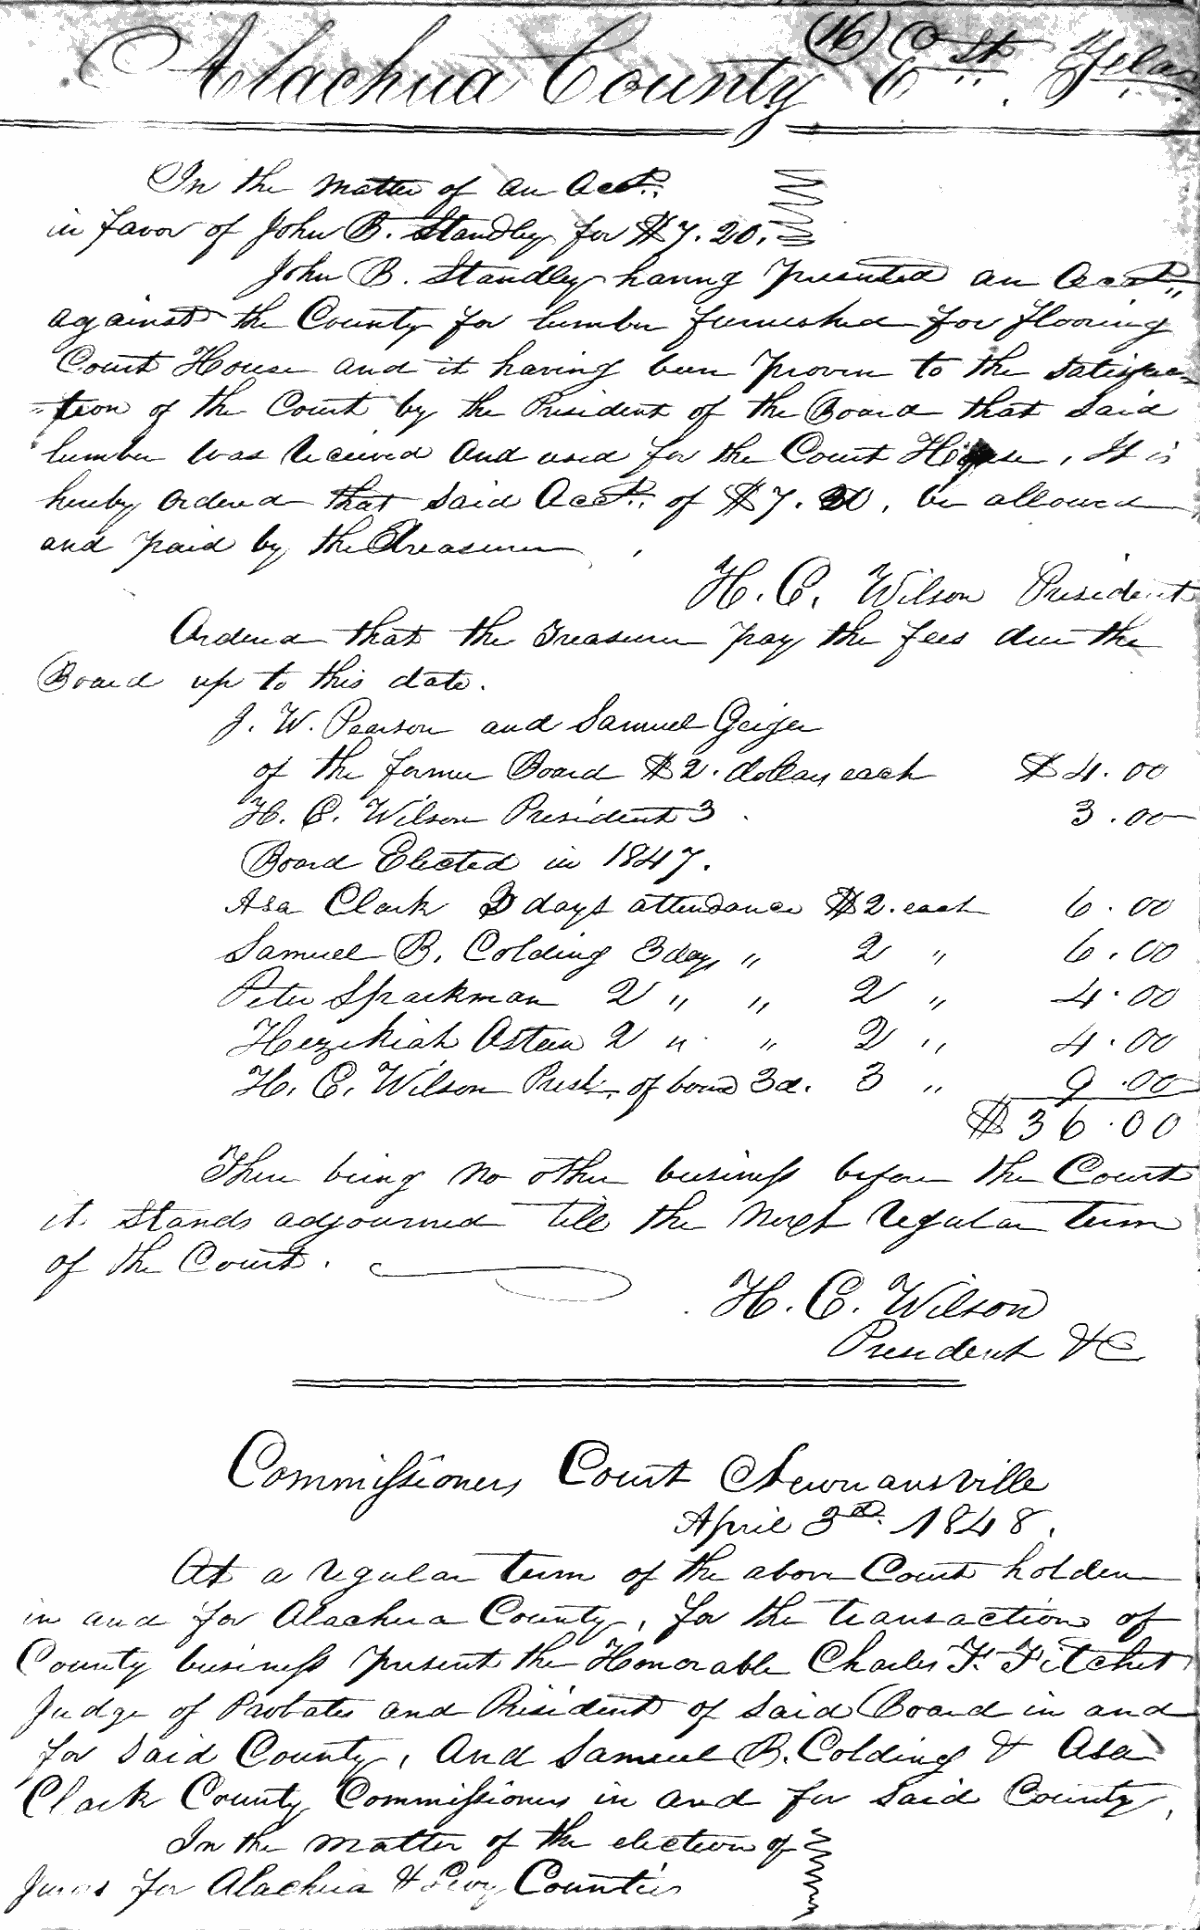 (16)
Alachua County Ct. St. Fla.
In the matter of an Acct.
in favor of John B. Standley for $7.20.
John B. Standley having presented an Acct.
against the County for lumber furnished for flooring
Court House and it having been proven to the satisfac-
-tion of the Court by the President of the Board that said
lumber was received and used for the Court House, It is
hereby ordered that said Acct. of $7.20, be allowed
and paid by the Treasurer.
H. C. Wilson President
Ordered that the Treasurer pay the fees due the
Board up to this date.
J. W. Pearson and Samuel Geiger
of the former Board $2. dollars each $4.00
H. C. Wilson President 3 3.00
Board Elected in 1847.
Asa Clark 3 days attendance $2. each 6.00
Samuel B. Colding 3 days " 2 " 6.00
Peter Sparkman 2 " " 2 " 4.00
Hezekiah Osteen 2 " " 2 " 4.00
H. C. Wilson Prest. of board 3d. 3 " 9.00
$36.00
There being no other business before the Court
it stands adjourned till the next regular term
of the Court.
H. C. Wilson
President &C
Commissioners Court Newnansville
April 3rd. 1848.
At a regular term of the above Court holden
in and for Alachua County, for the transaction of
County business present the Honorable Charles F. Fitchet
Judge of Probates and President of said Board in and
for said County, And Samuel B. Colding & Asa
Clark County Commissioners in and for said County,
In the matter of the election of
Jurors for Alachua & Levy Counties